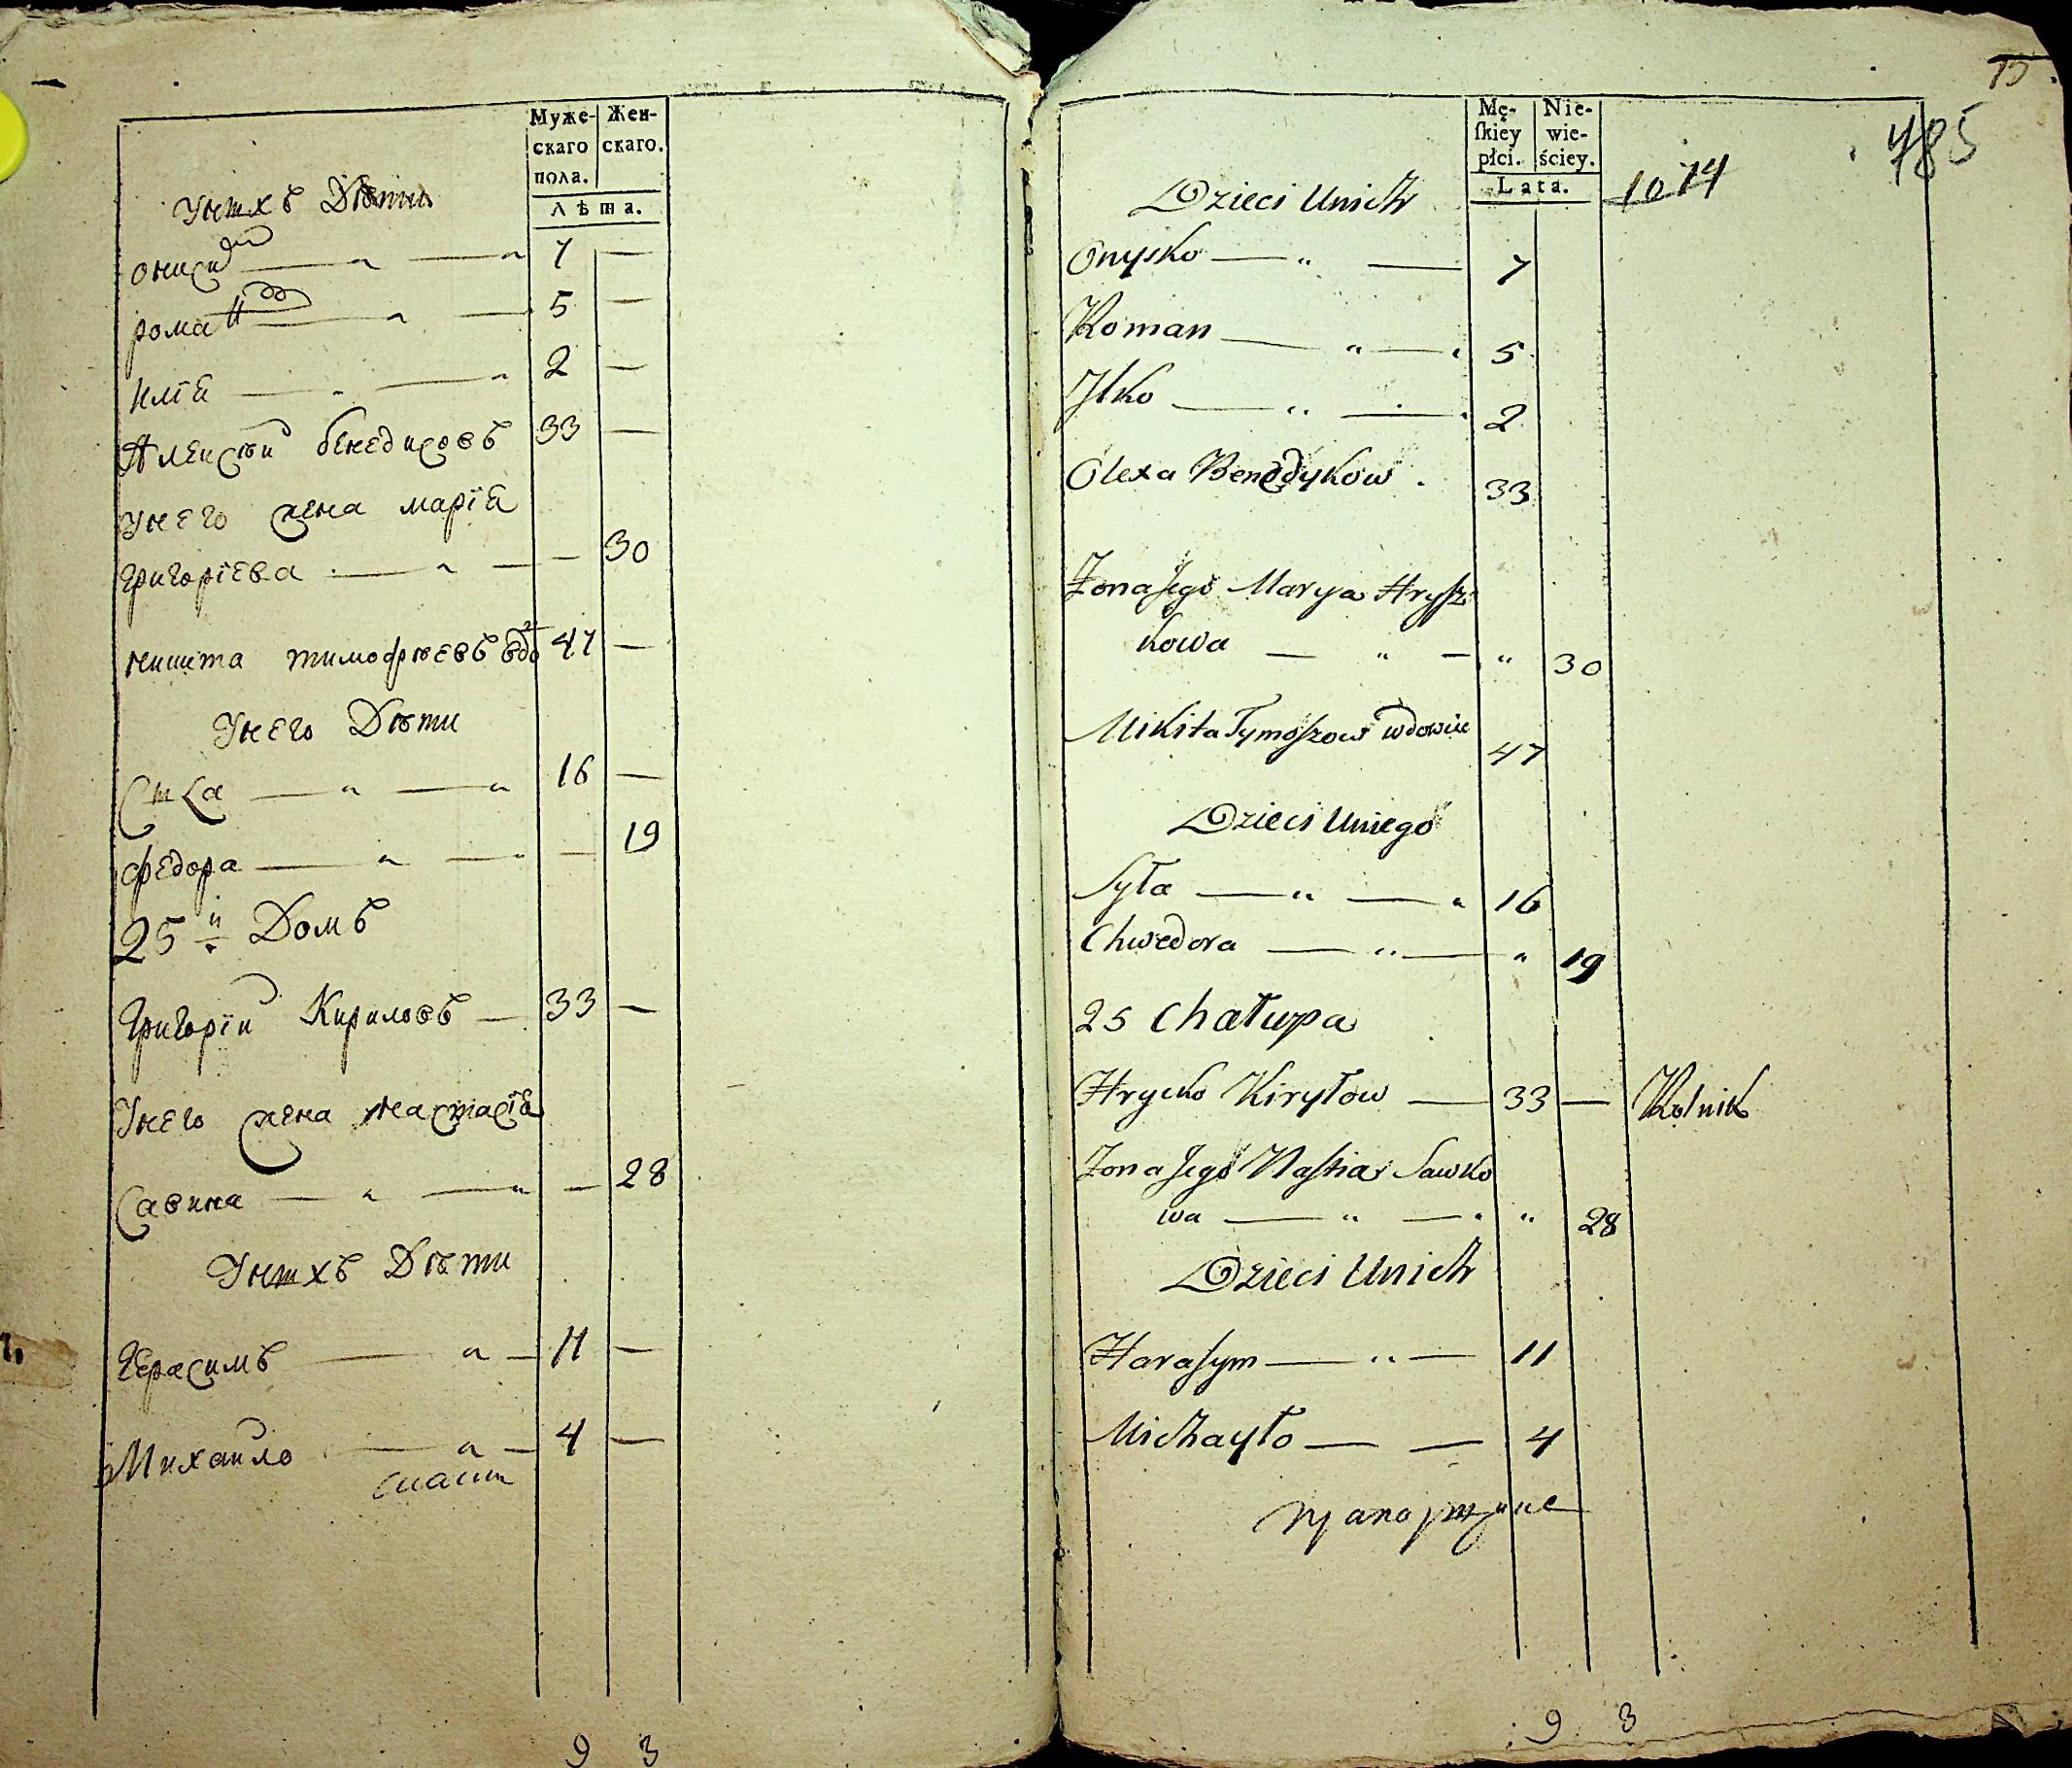 Муже-
скаго
пола.
Жен-
скаго.
Лѣта.
Унихъ Дѣти
Онисей — „ — „ 7 —
Романъ — „ — 5 —
Илїа — „ — „ 2 —
Алексѣй бенедиковъ 33 —
Унего жена марїа
Григорїева — „ — — 30
никита тимофѣевъ вдо 47 —
Унего Дѣти
Сила — „ — „ 16 —
Федора — „ — „ — 19
25й Домъ
Григорїй Кириловъ — 33 —
Унего жена Настасїа
Савина — „ — „ — 28
Унихъ Дѣти
Герасимъ — „ — 11 —
Михайло — „ — 4 —
9 3
15
785
Mę-
ſkiey
płci.
Nie-
wie-
ściey.
Lata.
1074
Dzieci Unich
Onysko — „ — 7
Roman — „ — „ 5
Jlko — „ — „ 2
Olexa Benedykow . 33
Zona Jego Marya Hryſz
kowa — „ — „ 30
Mikita Tymoſzow wdowiec 47
Dzieci Uniego
Syła — „ — „ 16
Chwedora — „ — „ 19
25 Chałupa
Hrycko Kiryłow — 33 — Rolnik
Zona Jego Naſtia Sawko
wa — „ — „ „ 28
Dzieci Unich
Haraſym — „ — 11
Michayło — — 4
9 3